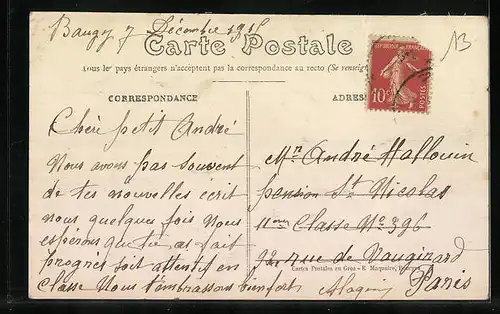 Baugy 7 Décembre 191
13
Carte Postale
Tous les pays étrangers n'acceptent pas la correspondance au recto (Se renseign
RÉPUBLIQUE FRANÇAISE
10
CORRESPONDANCE
ADRES
Chèr petit André
Nous avons pas souvent
de tes nouvelles écrit
nous quelques fois Nous
espérons que tu as fait
progrès soit attentif en
Classe Nous t'embrassons bien fort
Mr André Hallouin
pension St Nicolas
11me Classe No 396
92 rue de Vaugirard
Cartes Postales en Gros - E. Maquaire,
Paris